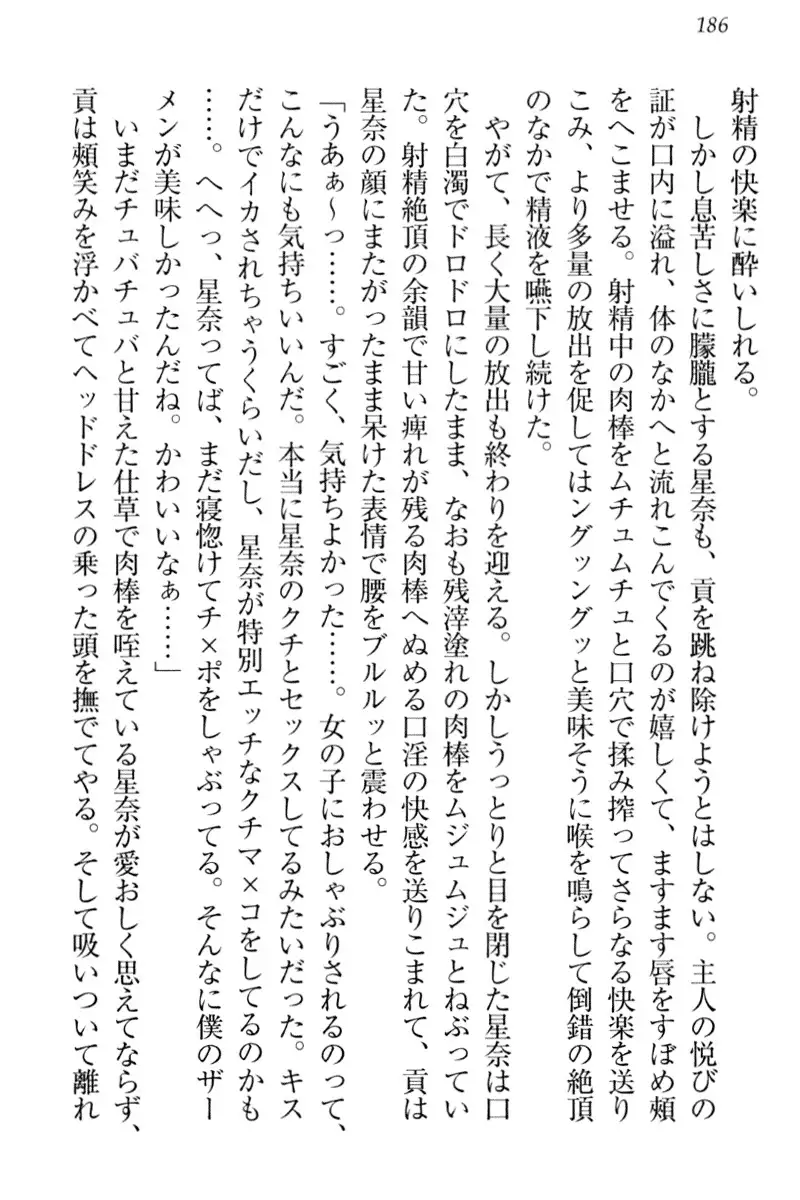 186
射精の快楽に酔いしれる。
しかし息苦しさに朦朧とする星奈も、貢を跳ね除けようとはしない。主人の悦びの
証が口内に溢れ、体のなかへと流れこんでくるのが嬉しくて、ますます唇をすぼめ頰
をへこませる。射精中の肉棒をムチュムチュと口穴で揉み搾ってさらなる快楽を送り
こみ、より多量の放出を促してはングッングッと美味そうに喉を鳴らして倒錯の絶頂
のなかで精液を嚥下し続けた。
やがて、長く大量の放出も終わりを迎える。しかしうっとりと目を閉じた星奈は口
穴を白濁でドロドロにしたまま、なおも残滓塗れの肉棒をムジュムジュとねぶってい
た。射精絶頂の余韻で甘い痺れが残る肉棒へぬめる口淫の快感を送りこまれて、貢は
星奈の顔にまたがったまま呆けた表情で腰をブルルッと震わせる。
「うあぁ〜っ……。すごく、気持ちよかった……。女の子におしゃぶりされるのって、
こんなにも気持ちいいんだ。本当に星奈のクチとセックスしてるみたいだった。キス
だけでイカされちゃうくらいだし、星奈が特別エッチなクチマ×コをしてるのかも
……。へへっ、星奈ってば、まだ寝惚けてチ×ポをしゃぶってる。そんなに僕のザー
メンが美味しかったんだね。かわいいなぁ……」
いまだチュバチュバと甘えた仕草で肉棒を咥えている星奈が愛おしく思えてならず、
貢は頰笑みを浮かべてヘッドドレスの乗った頭を撫でてやる。そして吸いついて離れ